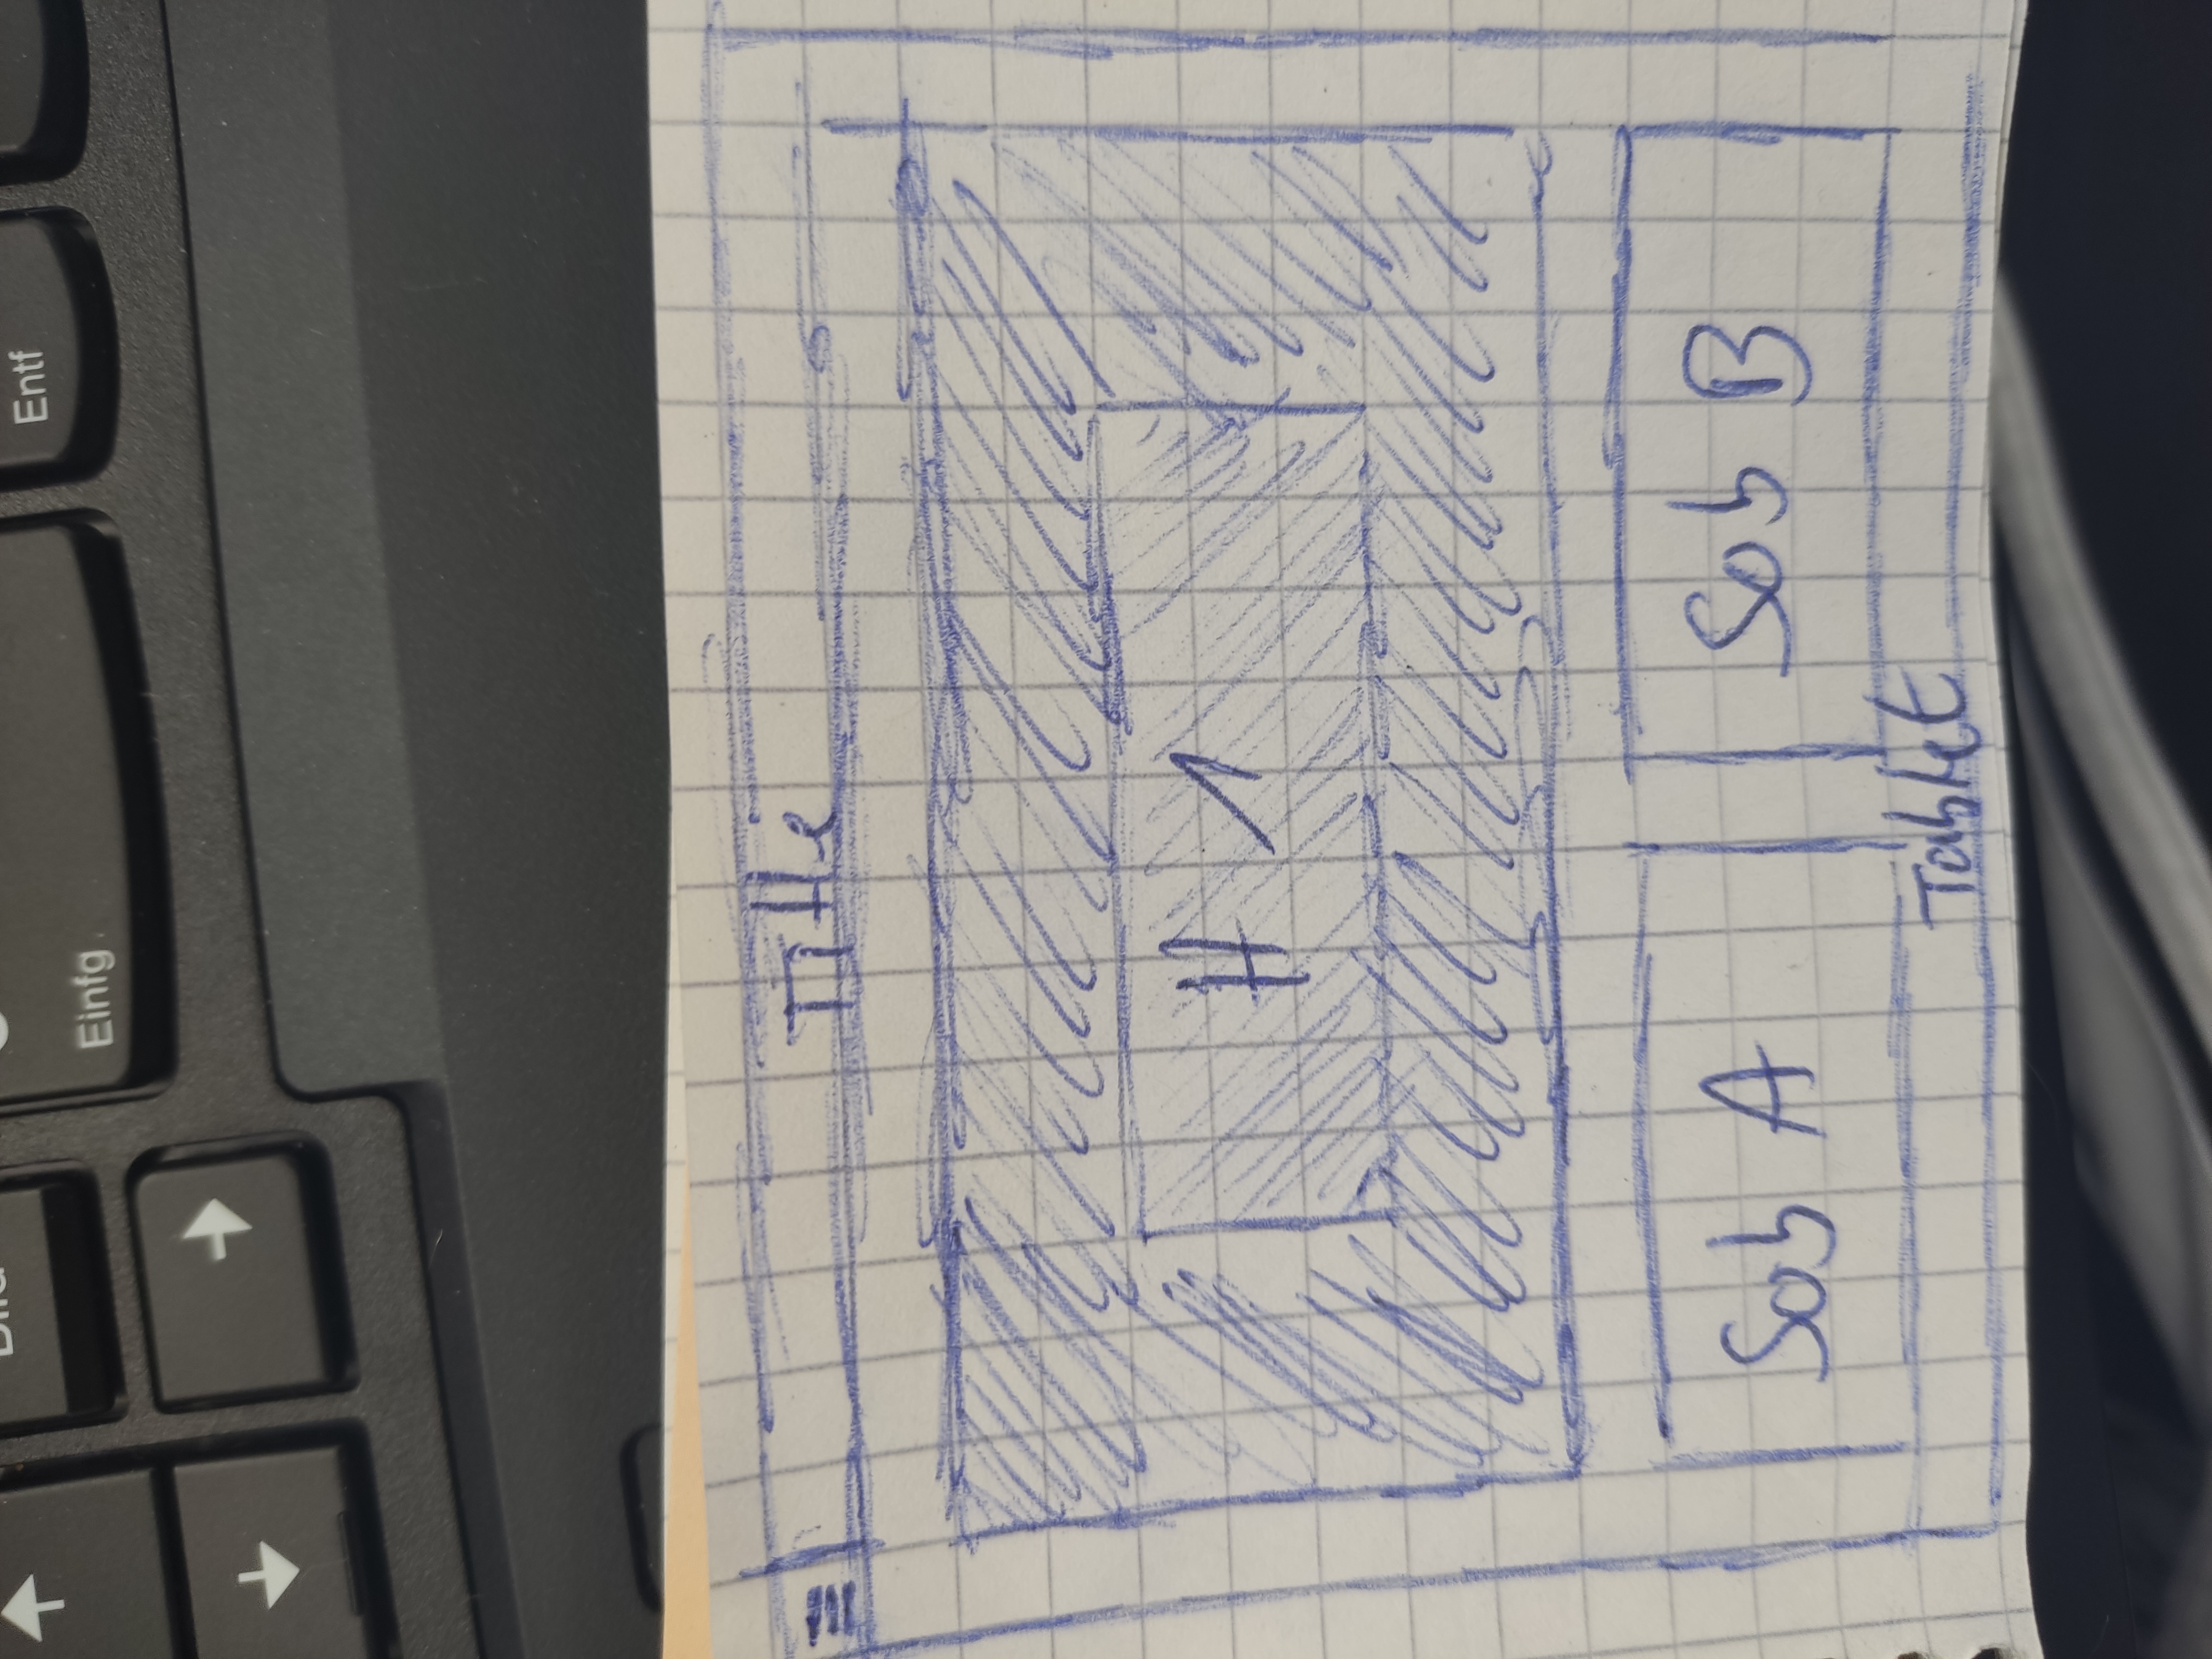 Bild
Einfg
Entf
Title
H 1
Sob A
Sob B
Tablet